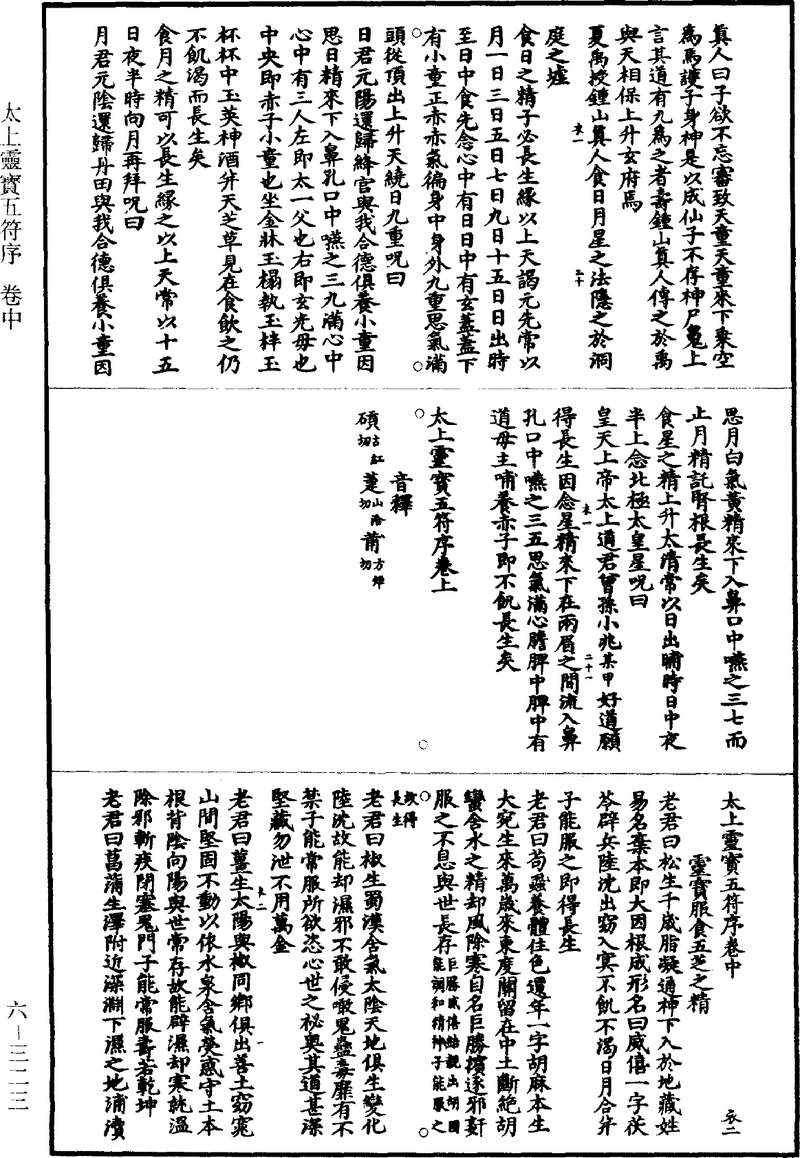 太上靈寶五符序　卷中
六—三二三
眞人曰子欲不忘審致天童天童來下乗空
爲馬護子身神是以成仙子不存神尸鬼上
言其道有九爲之者壽鍾山眞人傳之於禹
與天相保上升玄府焉
夏禹授鍾山眞人食日月星之法隱之於洞
庭之墟
食日之精子必長生緣以上天謁元先常以
月一日三日五日七日九日十五日日出時
至日中食先念心中有日日中有玄蓋蓋下
有小童正赤赤氣徧身中身外九重思氣滿
頭從頂出上升天繞日九重呪曰
日君元陽還歸絳宮與我合德俱養小童因
思日精來下入鼻孔口中嚥之三九滿心中
心中有三人左即太一父也右即玄光母也
中央即赤子小童也坐金牀玉榻執玉柈玉
杯杯中玉英神酒幷天芝草見在食飲之仍
不飢渴而長生矣
食月之精可以長生緣之以上天常以十五
日夜半時向月再拜呪曰
月君元陰還歸丹田與我合德俱養小童因
思月白氣黃精來下入鼻口中嚥之三七而
止月精託腎根長生矣
食星之精上升太清常以日出晡時日中夜
半上念北極太皇星呪曰
皇天上帝太上道君曾孫小兆某甲好道願
得長生因念星精來下在兩眉之間流入鼻
孔口中嚥之三五思氣滿心膽脾中脾中有
道母主哺養赤子即不飢長生矣
太上靈寶五符序卷上
音釋
碽古紅切　萐山洽切　莆方矩切
太上靈寶五符序卷中　衣二
靈寶服食五芝之精
老君曰松生千歲脂凝通神下入於地藏姓
易名葉本即大因根成形名曰威僖一字茯
苓辟兵陸沈出窈入冥不飢不渴日月合幷
子能服之即得長生
老君曰苟䖈養體住色還年一字胡麻本生
大宛生來萬歲來東度關留在中土斷絕胡
蠻含水之精却風除寒自名巨勝擯逐邪姧
服之不息與世長存巨勝威僖結親出胡國能調和精神子能服之
故得長生
老君曰椒生蜀漢含氣太陰天地俱生變化
陸沈故能却濕邪不敢侵噉鬼蠱毒靡有不
禁子能常服所欲恣心世之祕奥其道甚深
堅藏勿泄不用萬金
老君曰薑生太陽與椒同鄉俱出善土窈窕
山間堅固不動以依水泉含氣熒惑守土本
根背陰向陽與世常存故能辟濕却寒就溫
除邪斬疾閉塞鬼門子能常服壽若乾坤
老君曰菖蒲生澤附近深淵下濕之地浦濱